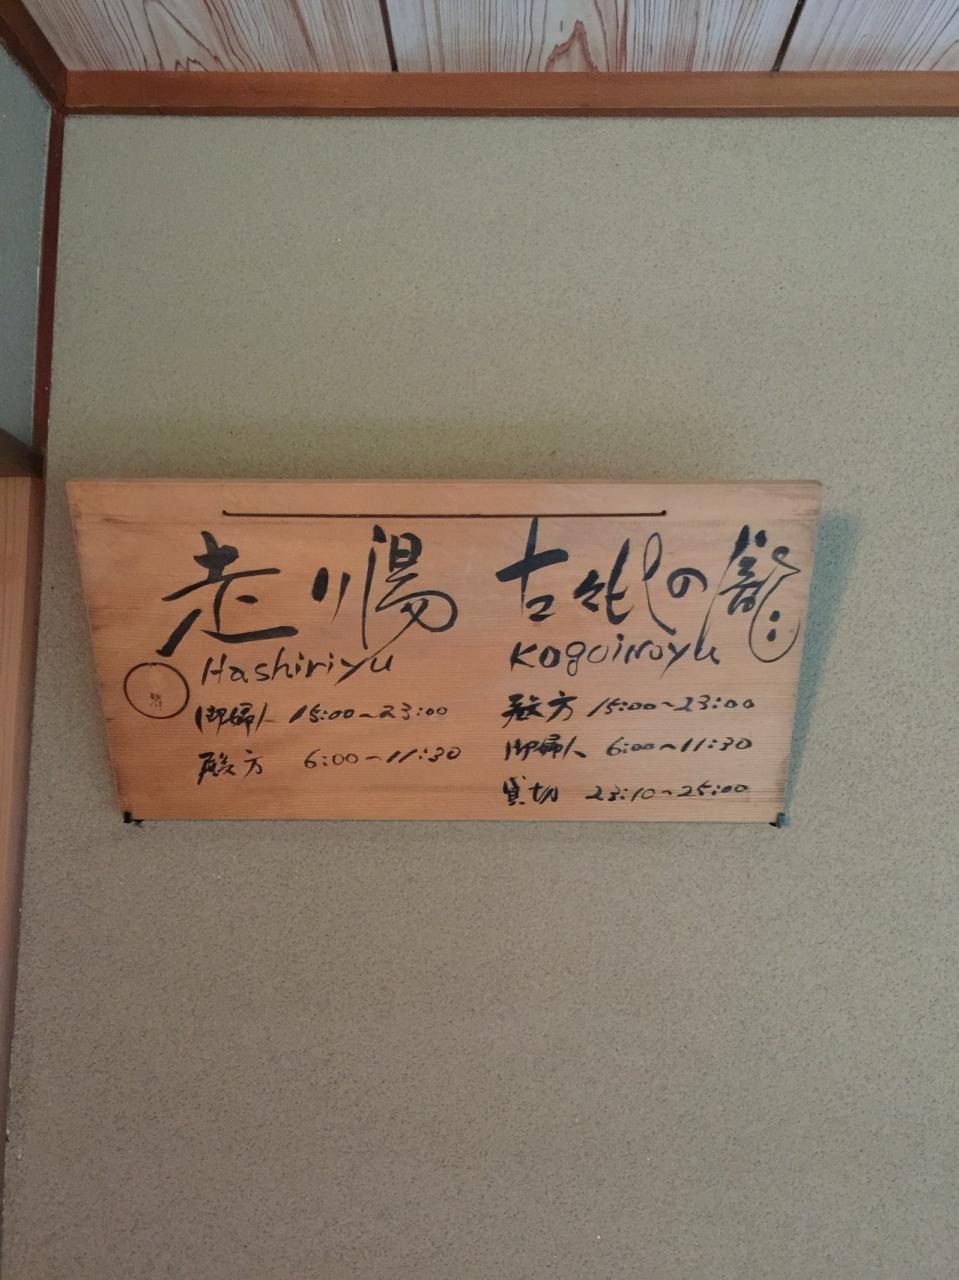 走り湯
Hashiriyu
御婦人 15:00~23:00
殿方 6:00~11:30
古々比の瀧
Kogoinoyu
殿方 15:00~23:00
御婦人 6:00~11:30
貸切 23:10~25:00